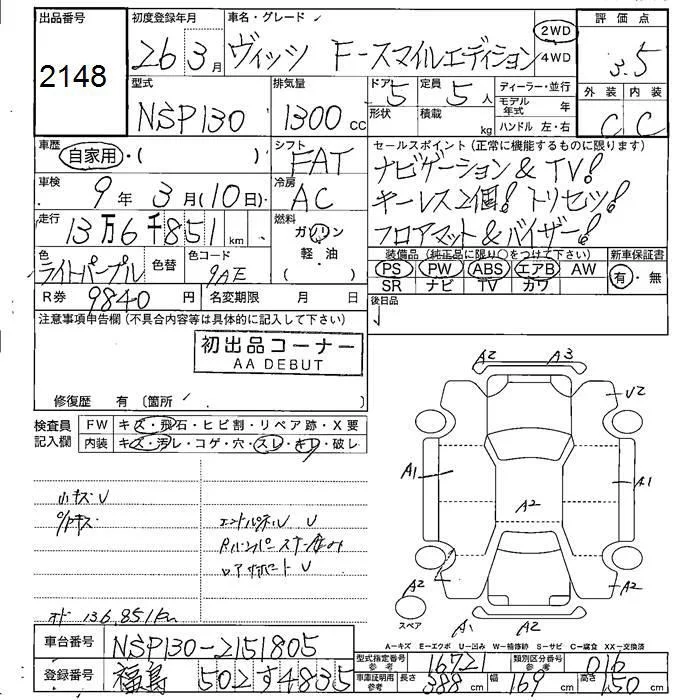 出品番号
2148
初度登録年月
26 3月
車名・グレード
ヴィッツ F-スマイルエディション
2WD
4WD
評価点
3.5
外装 内装
C C
型式
NSP130
排気量
1300cc
ドア 5
形状
定員 5人
積載 kg
ディーラー・並行
モデル年式 年
ハンドル 左・右
車歴
自家用・( )
シフト
FAT
セールスポイント(正常に機能するものに限ります)
ナビゲーション&TV!
キーレス2個!トリセツ!
フロアマット&バイザー!
車検
9年 3月(10日)
冷房
AC
走行
13万6千851km
燃料
ガソリン
軽・油
( )
色
ライトパープル
色替
色コード
9AE
装備品(純正品に限り○をつけて下さい)
PS PW ABS エアB AW
SR ナビ TV カワ
新車保証書
有・無
R券 9840円
名変期限 月 日
後日品
注意事項申告欄(不具合内容等は具体的に記入して下さい)
初出品コーナー
AA DEBUT
修復歴 有〔箇所
検査員
記入欄
FW キズ・飛石・ヒビ割・リペア跡・X要
内装 キズ・汚レ・コゲ・穴・スレ・キレ・破レ
小キズ U
エンドパネル U
Rバンパー
ロアサポート U
オド 136,851km
A2 A3
U2
A1
A1
A2
A2
A2
スペア
A1 A2
A-キズ E-エクボ U-凹み W-補修跡 S-サビ C-腐食 XX-交換済
車台番号
NSP130-2151805
登録番号
福島 502す4835
型式指定番号
参考
16721
類別区分番号
参考
016
車庫証明用
参考
長さ 388cm
幅 169cm
高さ 150cm